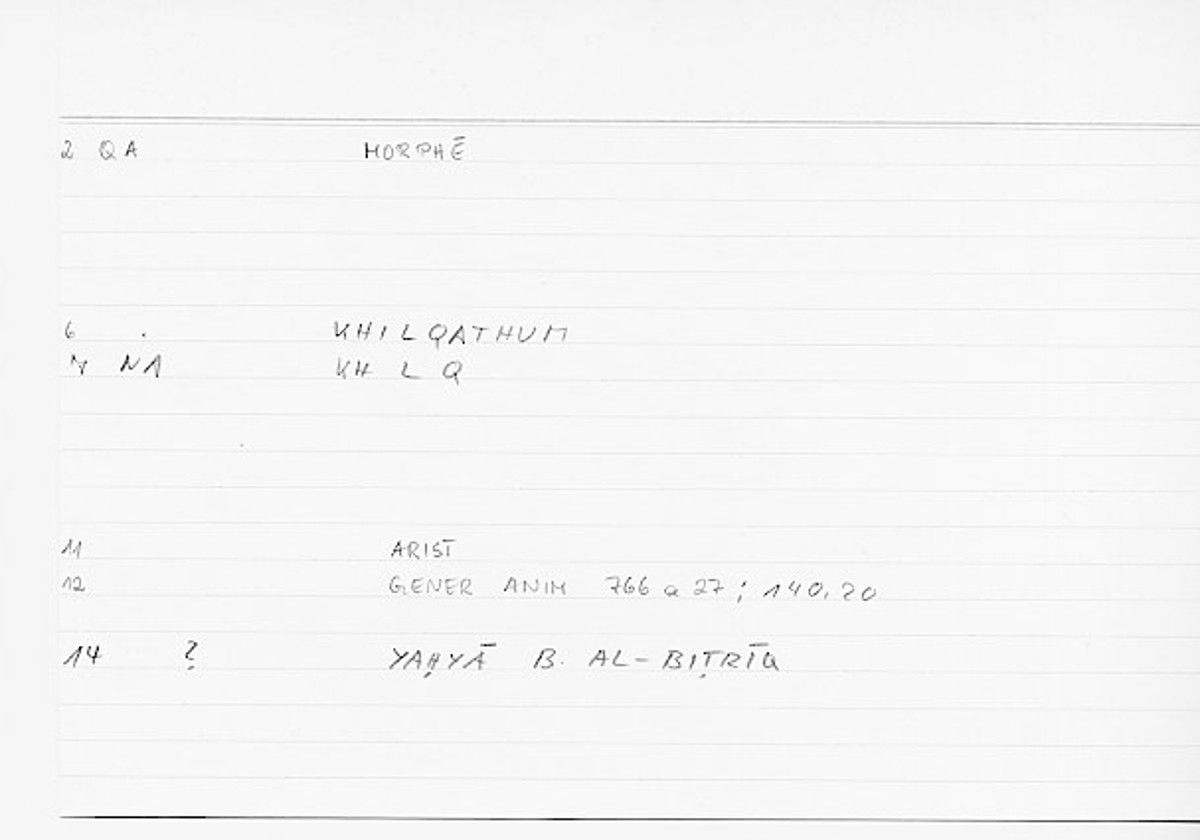 2 QA MORPHĒ
6 . KHILQATHUM
7 NA KH L Q
11 ARIST
12 GENER ANIM 766 a 27 ; 140,20
14 ? YAḤYĀ B. AL-BIṬRĪQ